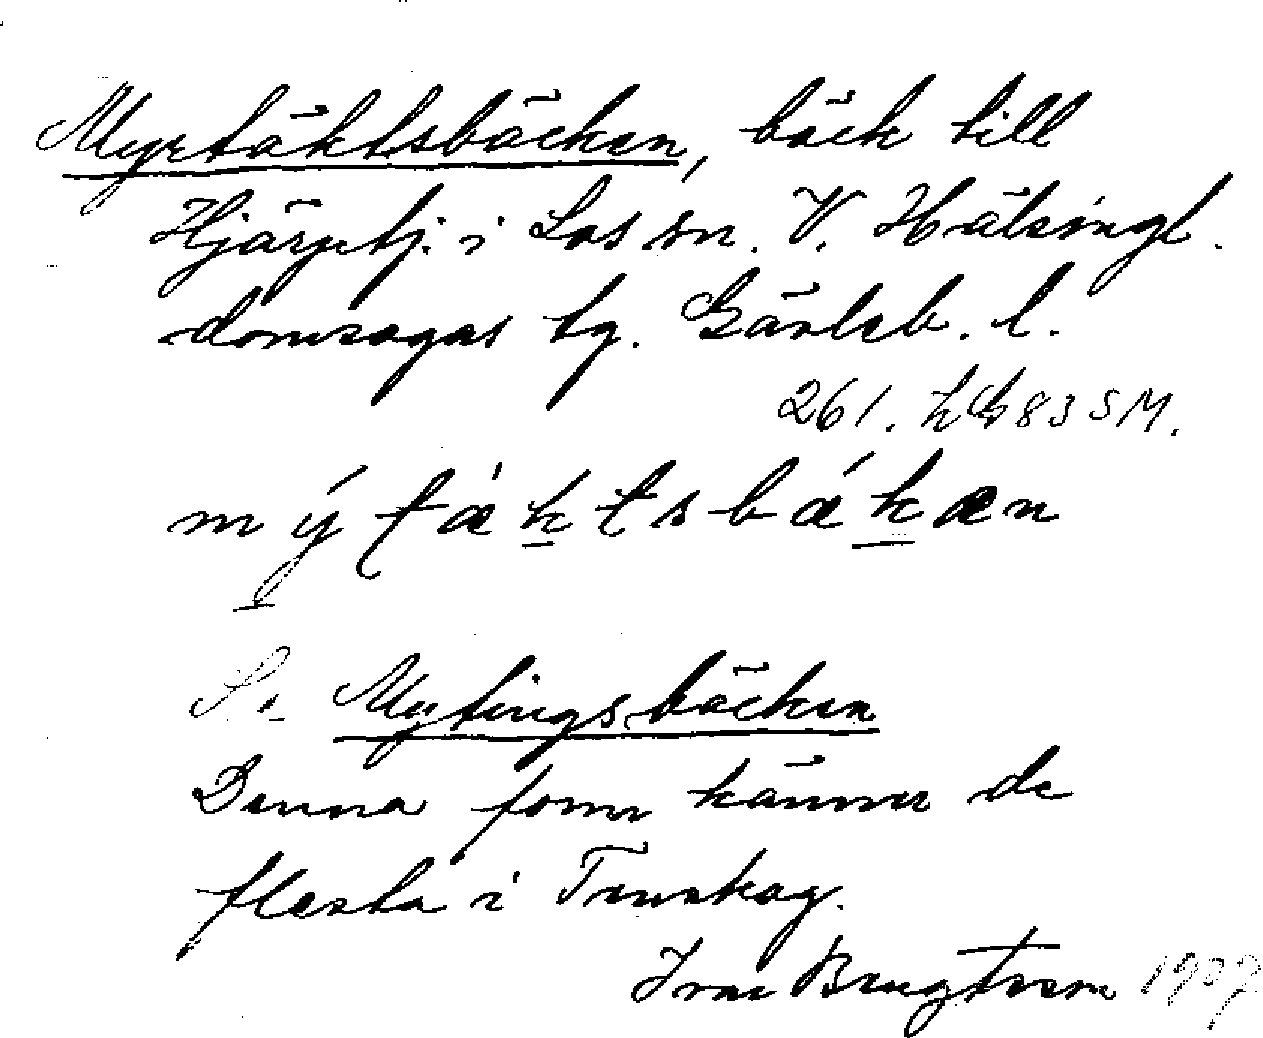 Myrtäktsbäcken, bäck till
Hjärptj. i Los sn. V. Hälsingl.
domsagas tg. Gävleb. l.
261. 83 SM.
mýtǽktsbǽkæn
Se Mytingsbäcken
Denna form känner de
flesta i Tunskog.
Ivar Bengtsson 1907